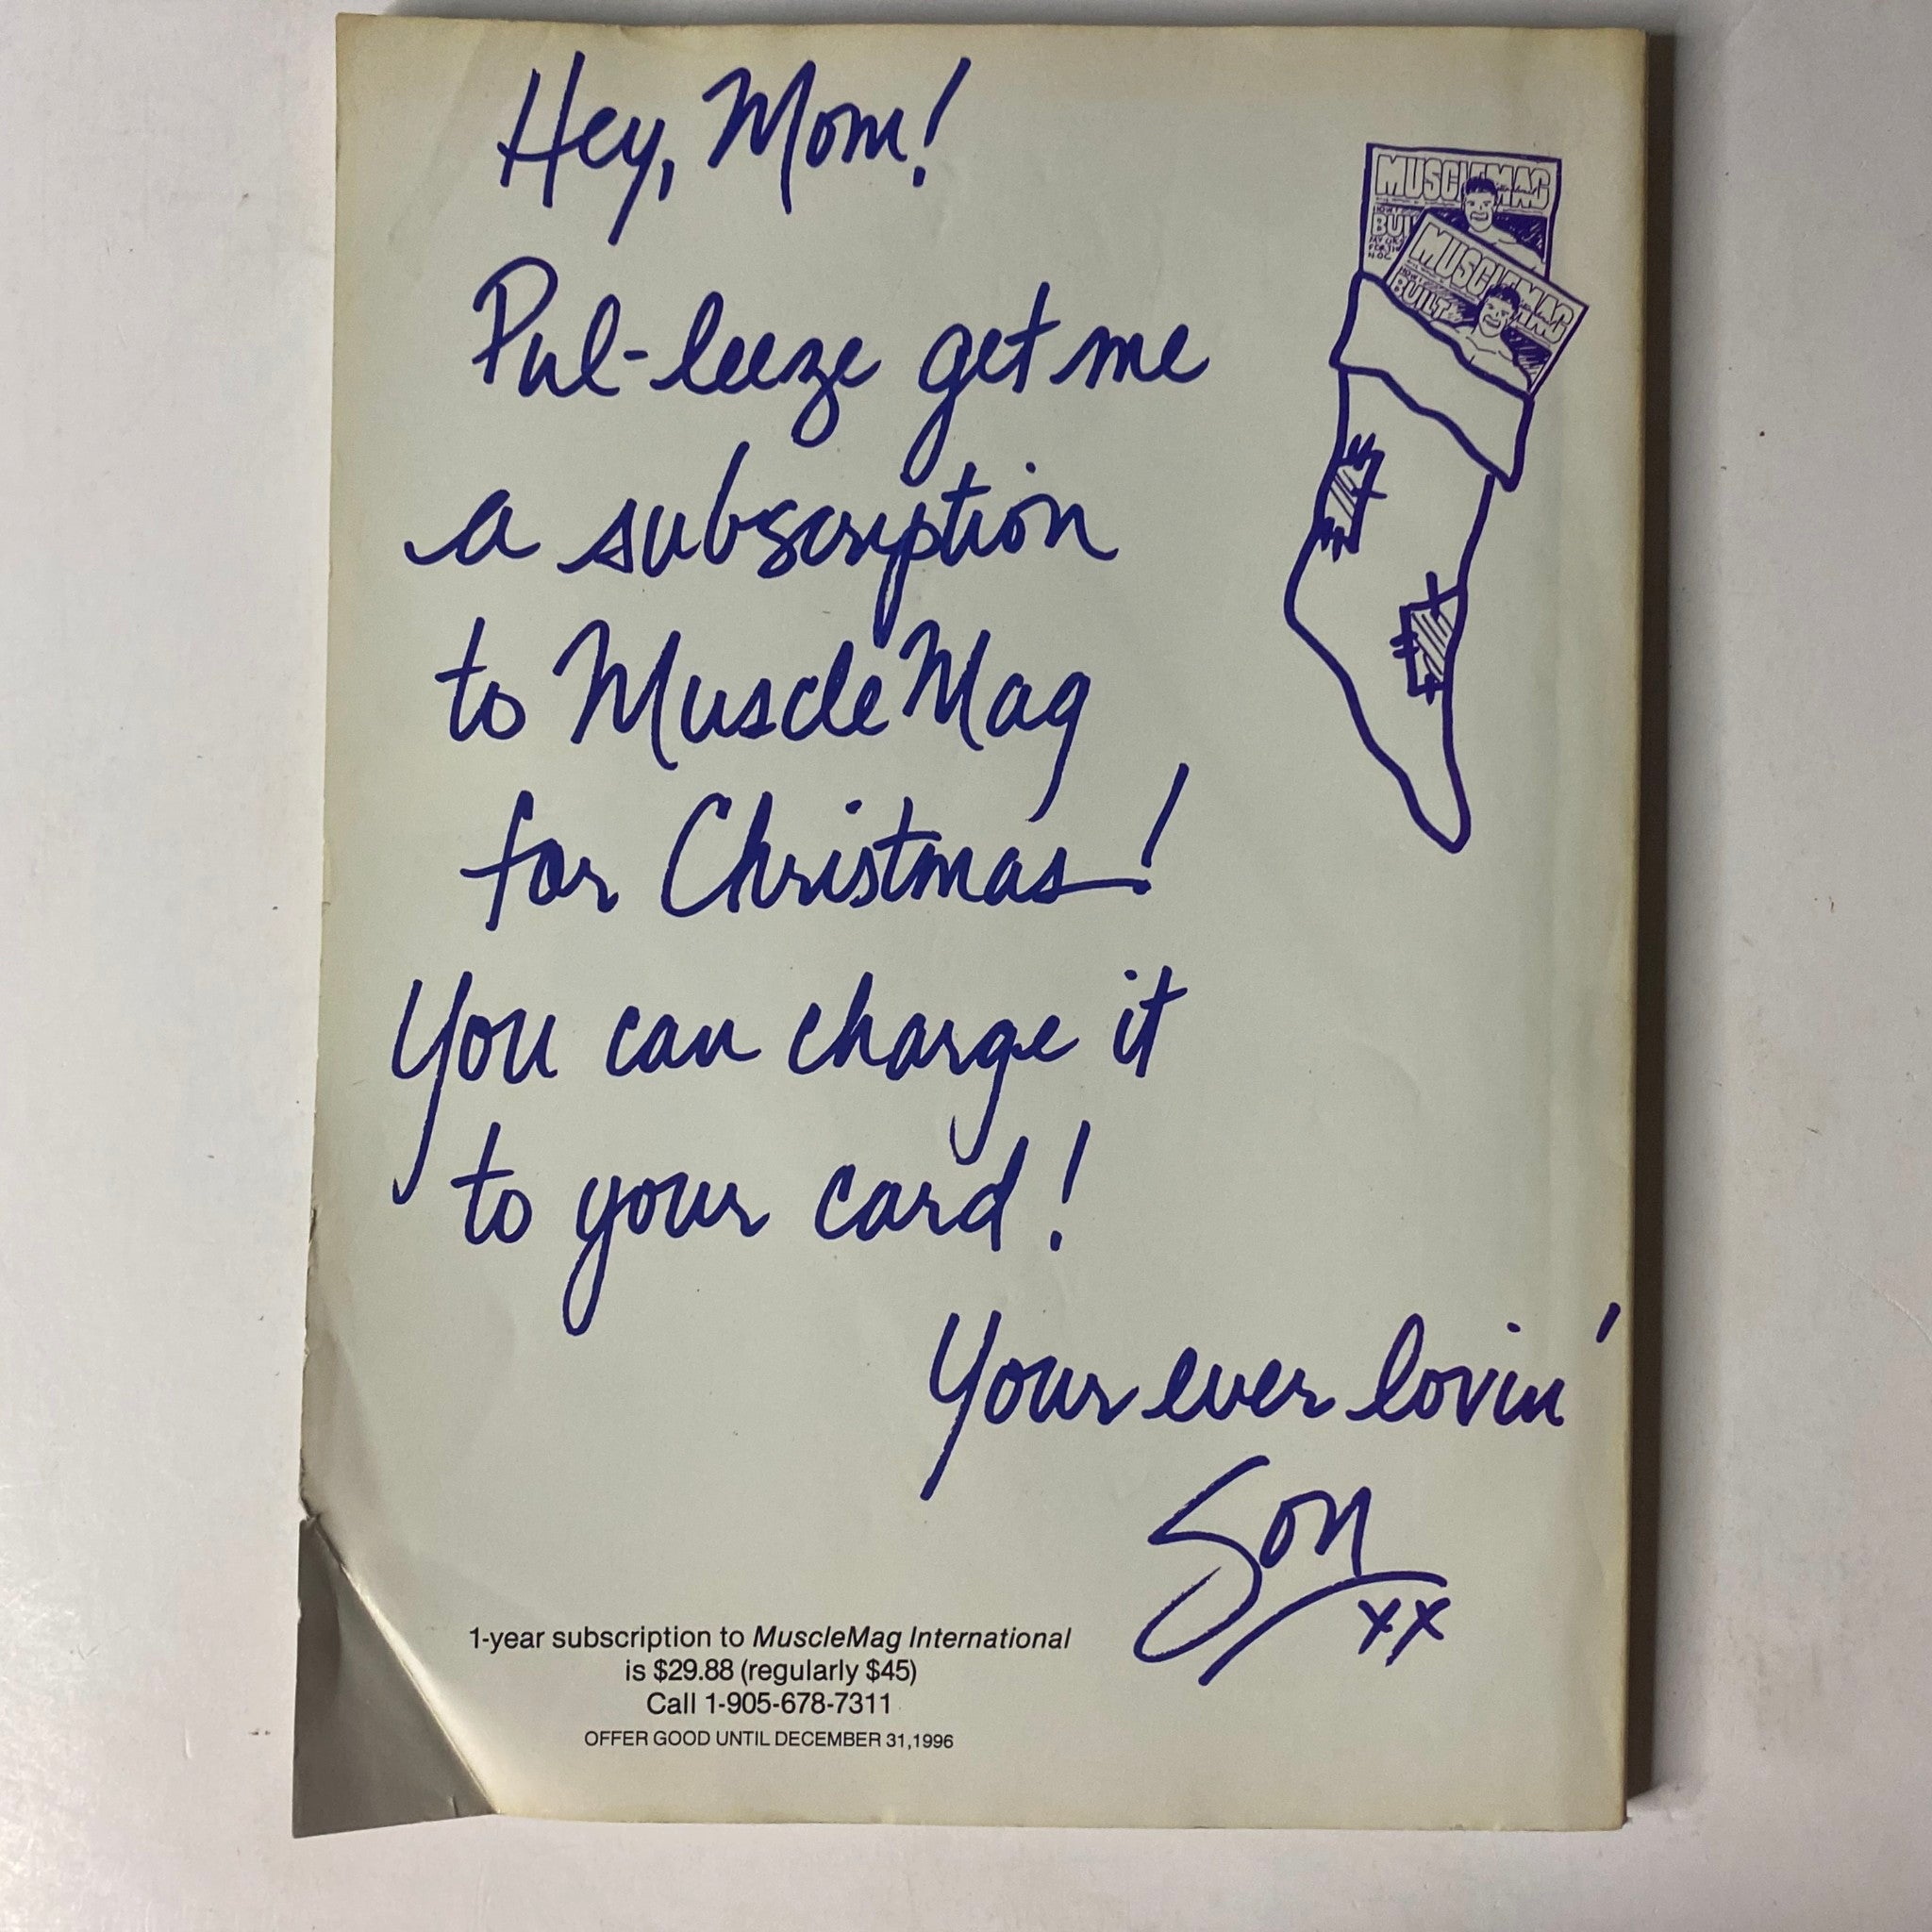 Hey, Mom!
Pul-leeze get me
a subscription
to MuscleMag
for Christmas!
You can charge it
to your card!
Your ever lovin'
Son
xx
MUSCLEMAG
MUSCLEMAG
BUILT
1-year subscription to MuscleMag International
is $29.88 (regularly $45)
Call 1-905-678-7311
OFFER GOOD UNTIL DECEMBER 31,1996